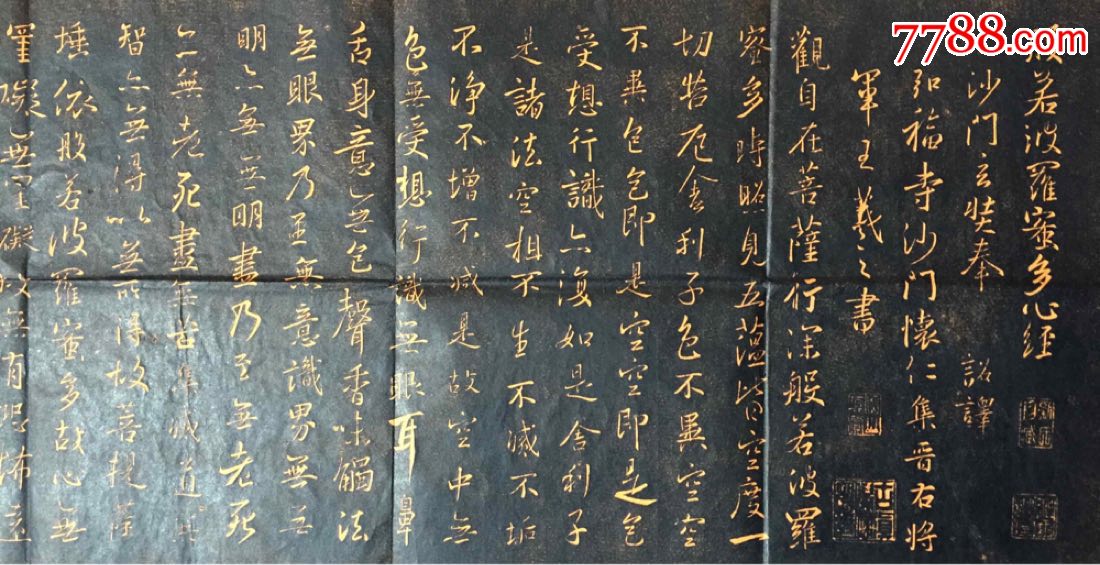 7788.com
般若波羅蜜多心經
沙門玄奘奉 詔譯
弘福寺沙門懷仁集晉右將
軍王羲之書
觀自在菩薩行深般若波羅
蜜多時照見五蘊皆空度一
切苦厄舍利子色不異空空
不異色色即是空空即是色
受想行識亦復如是舍利子
是諸法空相不生不滅不垢
不淨不增不減是故空中無
色無受想行識無眼耳鼻
舌身意無色聲香味觸法
無眼界乃至無意識界無無
明亦無無明盡乃至無老死
亦無老死盡無苦集滅道無
智亦無得以無所得故菩提薩
埵依般若波羅蜜多故心無
罣礙無罣礙故無有恐怖遠